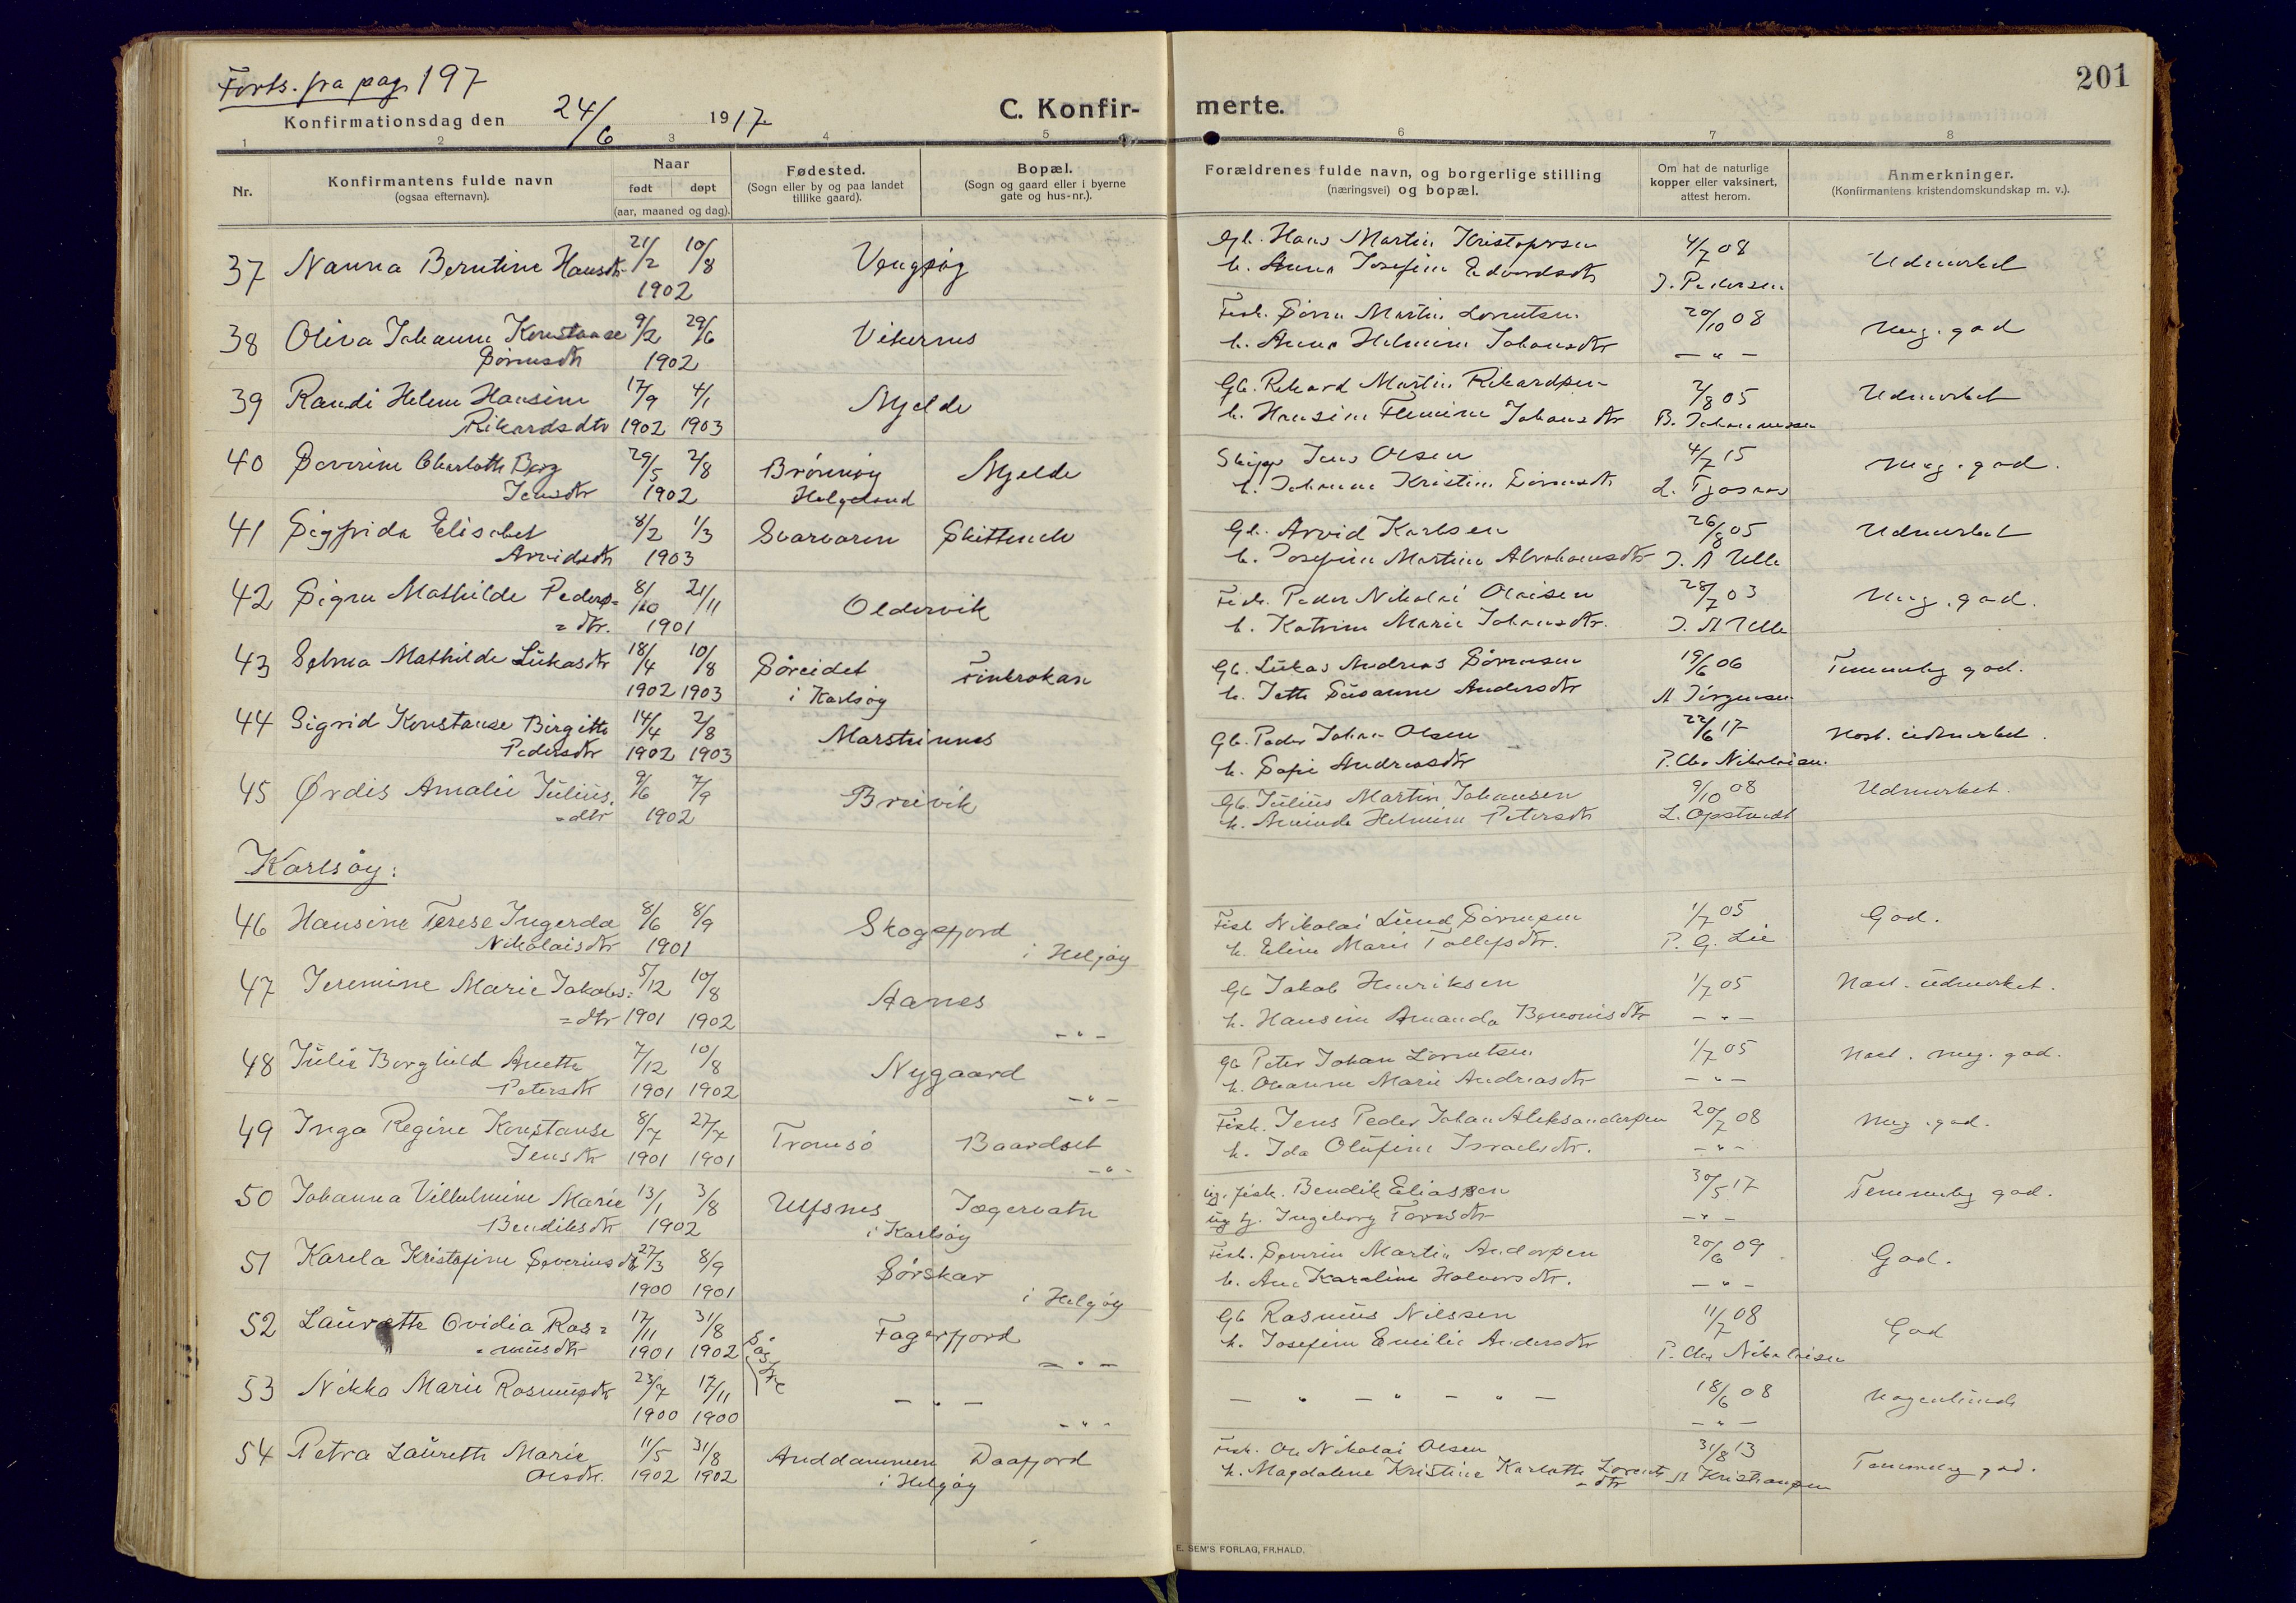 Forts. fra pag. 197
201
Konfirmationsdag den 24/6 1917
C. Konfir- merte.
1 2 3 4 5 6 7 8
Nr.
Konfirmantens fulde navn
(ogsaa efternavn).
Naar
født døpt
(aar, maaned og dag).
Fødested.
(Sogn eller by og paa landet
tillike gaard).
Bopæl.
(Sogn og gaard eller i byerne
gate og hus-nr.).
Forældrenes fulde navn, og borgerlige stilling
(næringsvei) og bopæl.
Om hat de naturlige
kopper eller vaksinert,
attest herom.
Anmerkninger.
(Konfirmantens kristendomskundskap m. v.).
37 Nanna Berntine Hansdtr 21/2 10/8 Vengsøy Gb. Hans Martin Kristofersen 4/7 08 Udmerket
1902 h. Anna Josefine Edvardsdtr J. Pedersen
38 Oliva Johanne Konstanse 9/2 29/6 Vikernes Fisk. Sören Martin Lorentsen 20/10 08 Meg. god
Sörensdtr 1902 h. Anna Helmine Johansdtr — " —
39 Randi Helene Hansine 17/9 4/1 Mjelde Gb. Rikard Martin Rikardsen 2/8 05 Udmerket
Rikardsdtr 1902 1903 h. Hansine Flemine Johansdtr B. Johannessen
40 Severine Charlotte Berg 29/5 2/8 Brönnöy Mjelde Skipp. Jens Olsen 4/7 15 Meg. god.
Jensdtr 1902 Helgeland h. Johanne Kristine Sörensdtr L.
41 Sigfrida Elisabet 8/2 1/3 Svarvaren Skittenelv Gb. Arvid Karlsen 26/8 05 Udmerket
Arvidsdtr 1903 h. Josefine Martine Abrahamsdtr J. A Ulle
42 Sigru Mathilde Peders= 8/10 21/11 Oldervik Fisk. Peder Nikolai Olaisen 28/7 03 Meg. god.
= dtr. 1901 h. Katrine Marie Johansdtr. J. A Ulle
43 Selma Mathilde Lükasdtr 18/4 10/8 Söreidet Finkroken Gb. Lükas Andreas Sörensen 19/6 06 Temmelig god.
1902 1903 i Karlsöy h. Jette Susanne Andersdtr A Jörgensen
44 Sigrid Konstanse Birgitte 14/4 2/8 Marsteinnes Gb. Peder Johan Olsen 22/6 17 Næst. udmerket.
Pedersdtr 1902 1903 h. Sofie Andreasdtr P. Chr Nikolaisen.
45 Ørdis Amalie Julius= 9/6 7/9 Breivik Gb. Julius Martin Johansen 9/10 08 Udmerket.
=dtr 1902 h. Aminda Helmine Petersdtr L. Opstvedt
Karlsöy:
46 Hansine Terese Ingerda 8/6 8/9 Skogsfjord Fisk Nikolai Lund Sörensen 1/7 05 God.
Nikolaisdtr 1901 i Helgöy h. Eline Marie Tollefsdtr. P. G. Lie
47 Jeremine Marie Jakobs= 5/12 10/8 Aanes Gb Jakob Henriksen 1/7 05 Næst. udmerket.
=dtr 1901 1902 — " — h. Hansine Amanda Benonisdtr — " —
48 Julie Borghild Anette 7/12 10/8 Nygaard Gb Peter Johan Lorentsen 1/7 05 Næst. meg. god.
Petersdtr 1901 1902 — " — h. Oleanne Marie Andreasdtr — " —
49 Inga Regine Konstanse 8/7 27/7 Tromsö Baardset Fisk. Jens Peder Johan Aleksandersen 20/7 08 Meg. god.
Jensdtr 1901 1901 — " — h. Ida Olufine Israelsdtr. — " —
50 Johanna Vilhelmine Marie 13/1 3/8 Ulfsnes Jægervatn ug. fisk. Bendik Eliassen 30/5 17 Temmelig god.
Bendiksdtr 1902 i Karlsöy ug tj. Ingeborg — " —
51 Karela Kristofine Severinsdtr 27/3 8/9 Sörskar Fisk. Severin Martin Andersen 20/6 09 God.
1900 1901 i Helgöy h. Ane Karoline Halvorsdtr. — " —
52 Laurette Ovidia Ras= 17/11 31/8 Fagerfjord Gb Rasmus Nilssen 11/7 08 God
=musdtr 1901 1902 Søstre — " — h. Josefine Emilie Andersdtr P. Chr Nikolaisen
53 Nikka Marie Rasmusdtr 23/7 17/11 — " — — " — " — " — 18/6 08 Nogenlunde
1900 1900 — " — — " —
54 Petra Laurette Marie 11/5 31/8 Anddammen Daafjord Fisk. Ole Nikolai Olsen 31/8 13 Temmelig god.
Olsdtr. 1902 1902 i Helgöy h. Magdalene Kristine Karlotte Lorents A Kristiansen
=dtr
E. SEM'S FORLAG, FR.HALD.